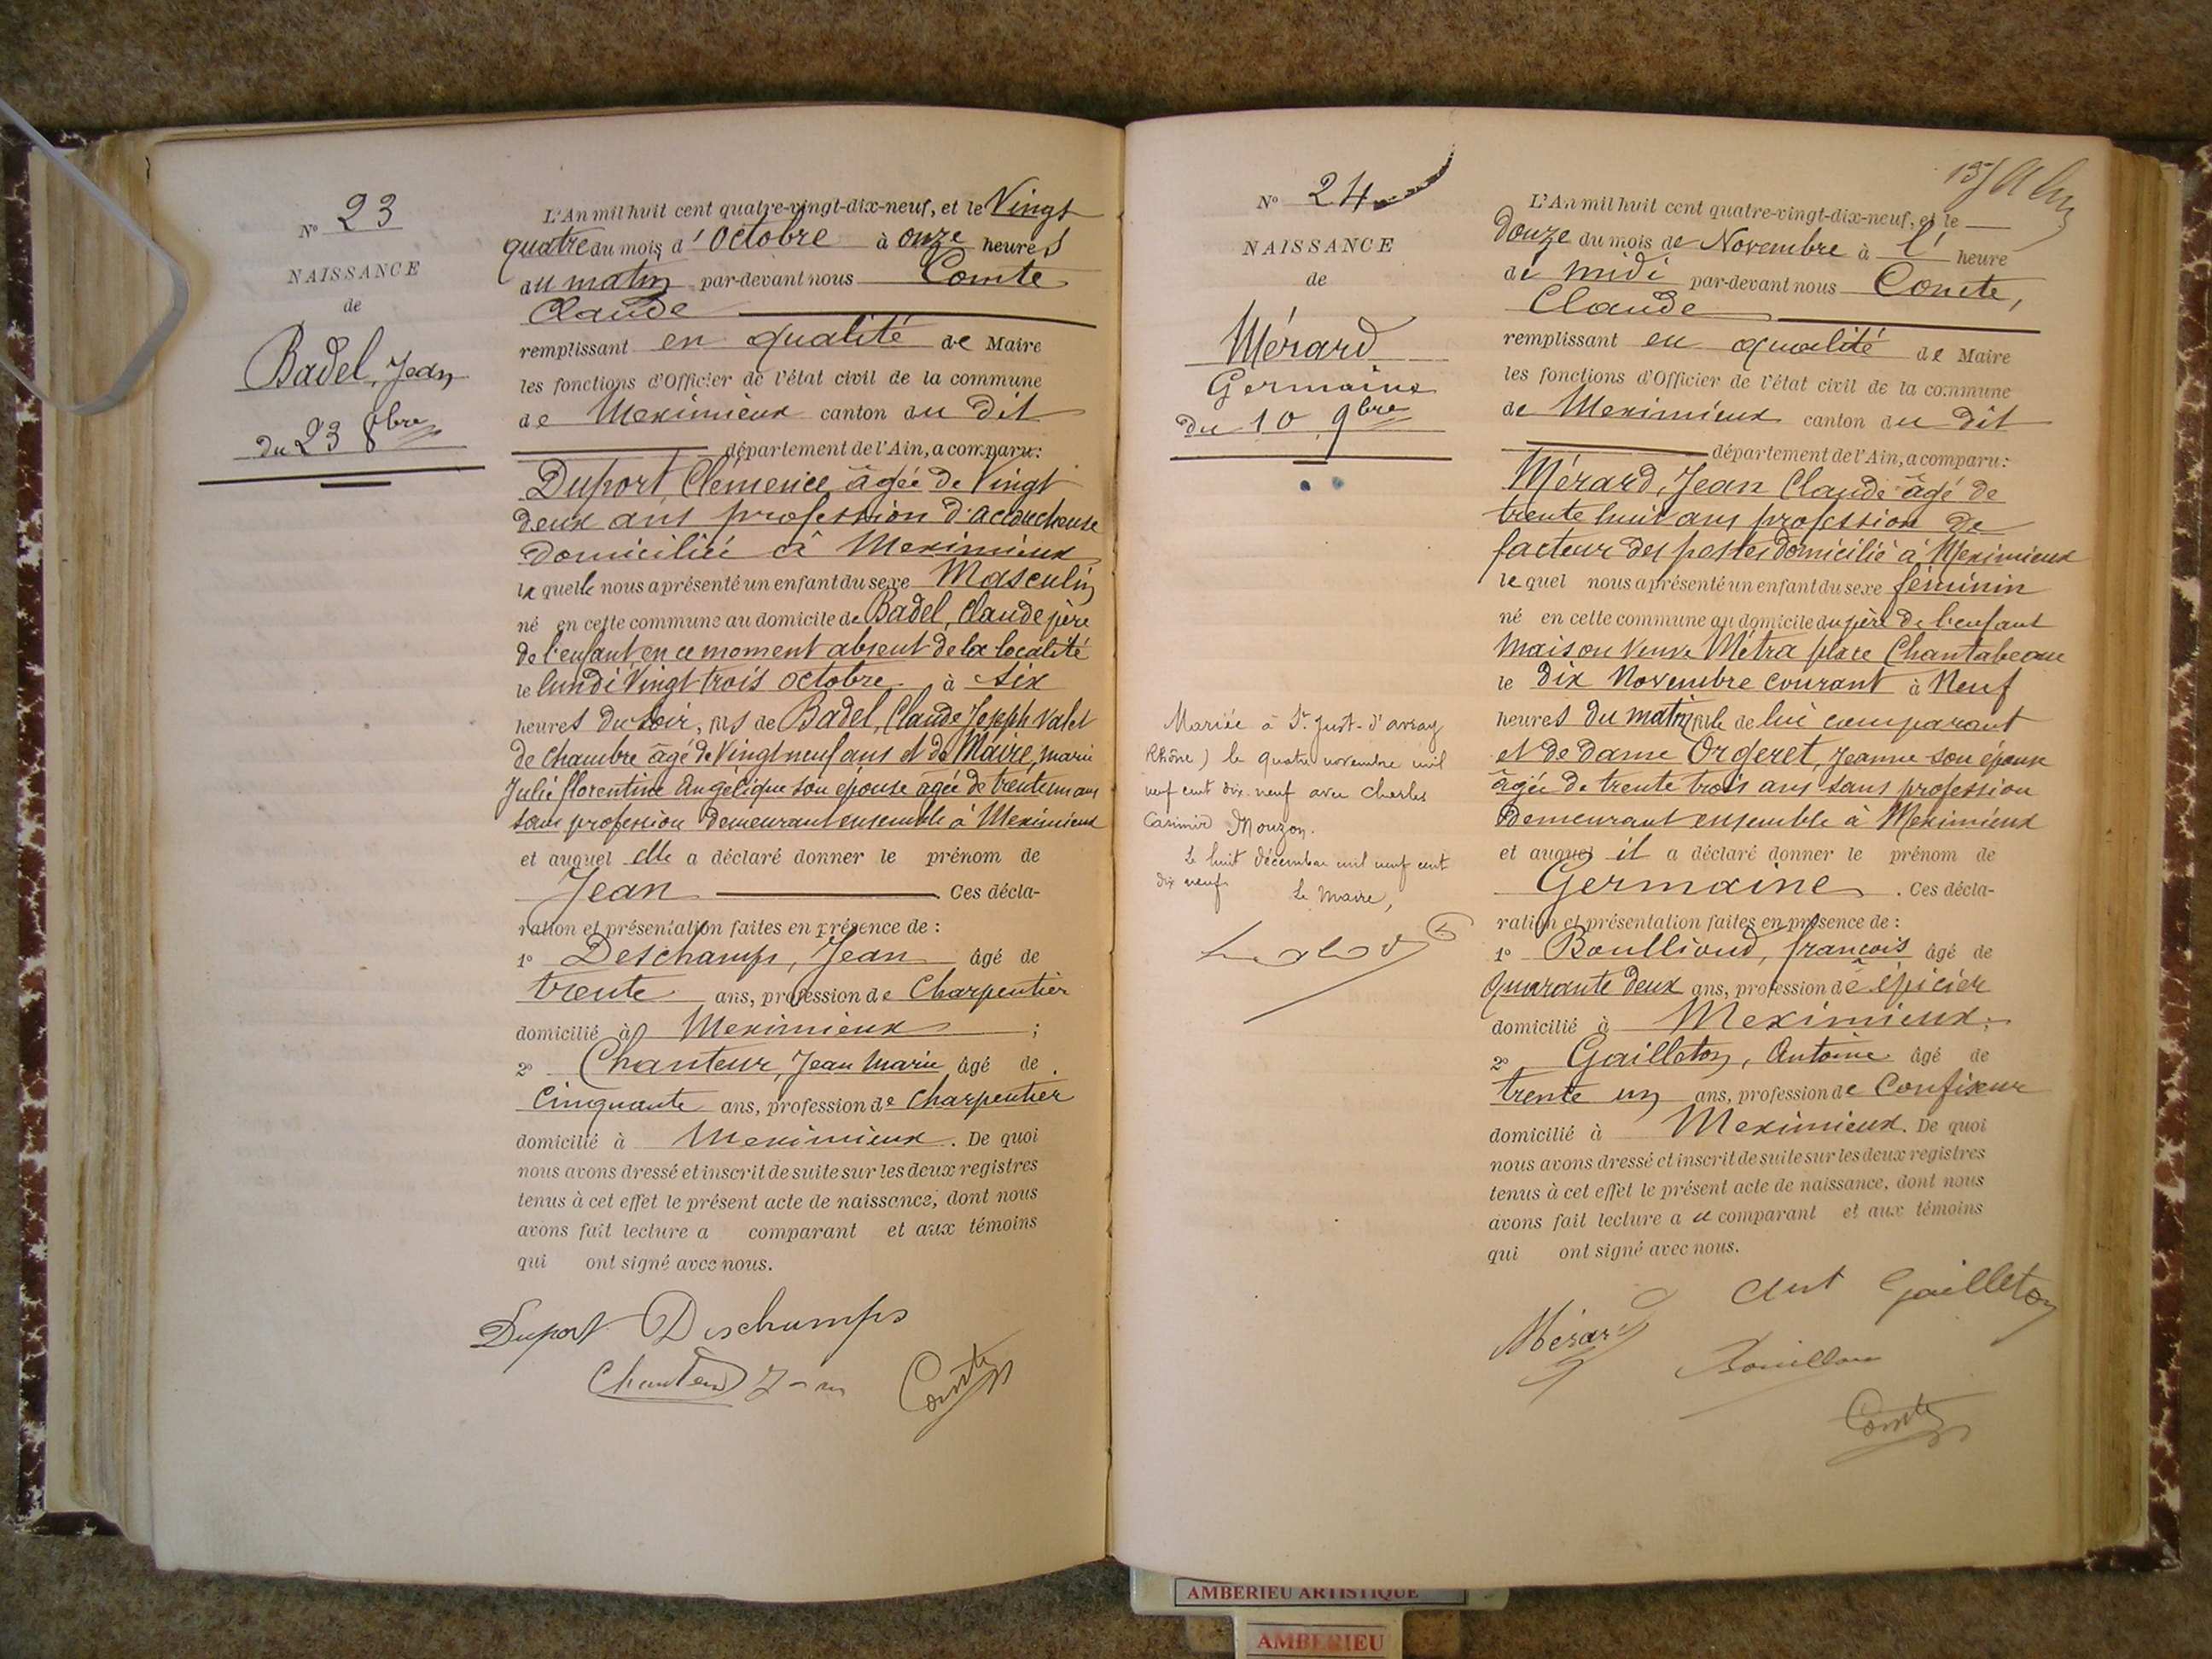 N° 23
NAISSANCE
de
Badel, Jean
du 23 8bre
L'An mil huit cent quatre-vingt-dix-neuf, et le Vingt
quatre du mois d'Octobre à onze heures
du matin par-devant nous Comte
Claude
remplissant en qualité de Maire
les fonctions d'Officier de l'état civil de la commune
de Meximieux canton du dit
département de l'Ain, a comparu:
Duport, Clémence âgée de Vingt
deux ans profession d'accoucheuse
domiciliée à Meximieux
la quelle nous a présenté un enfant du sexe Masculin
né en cette commune au domicile de Badel, Claude père
de l'enfant, en ce moment absent de la localité
le lundi Vingt trois octobre à six
heures du soir, fils de Badel, Claude Joseph Valet
de chambre âgé de Vingt neuf ans et de Maire, marie
Julie florentine Angélique son épouse âgée de trente un ans
sans profession demeurant ensemble à Meximieux
et auquel elle a déclaré donner le prénom de
Jean . Ces décla-
ration et présentation faites en présence de :
1° Deschamps, Jean âgé de
trente ans, profession de Charpentier
domicilié à Meximieux ;
2° Chanteur, Jean Marie âgé de
Cinquante ans, profession de Charpentier
domicilié à Meximieux. De quoi
nous avons dressé et inscrit de suite sur les deux registres
tenus à cet effet le présent acte de naissance, dont nous
avons fait lecture a comparant et aux témoins
qui ont signé avec nous.
Duport Deschamps
Chanteur Comte
N° 24
NAISSANCE
de
Mérard
Germaine
du 10 9bre
Mariée à St Just-d'avray
Rhône) le quatre novembre mil
neuf cent dix-neuf avec Charles
Casimir Mouzon.
Le huit décembre mil neuf cent
dix neuf
Le Maire,
L'An mil huit cent quatre-vingt-dix-neuf, et le
douze du mois de Novembre à l' heure
de midi par-devant nous Comte,
Claude
remplissant en qualité de Maire
les fonctions d'Officier de l'état civil de la commune
de Meximieux canton du dit
département de l'Ain, a comparu:
Mérard, Jean Claude âgé de
trente huit ans profession de
facteur des postes domicilié à Meximieux
le quel nous a présenté un enfant du sexe féminin
né en cette commune au domicile du père de l'enfant
maison Veuve Métra place Chantabeau
le dix Novembre courant à Neuf
heures du matin, fille de lui comparant
et de dame Orgeret, Jeanne son épouse
âgée de trente trois ans sans profession
demeurant ensemble à Meximieux
et auquel il a déclaré donner le prénom de
Germaine . Ces décla-
ration et présentation faites en présence de :
1° Boullioud, françois âgé de
quarante deux ans, profession de épicier
domicilié à Meximieux;
2° Gailleton, Antoine âgé de
trente un ans, profession de Confiseur
domicilié à Meximieux. De quoi
nous avons dressé et inscrit de suite sur les deux registres
tenus à cet effet le présent acte de naissance, dont nous
avons fait lecture a u comparant et aux témoins
qui ont signé avec nous.
Mérard Ant Gailleton
Comte
AMBERIEU ARTISTIQUE
AMBERIEU